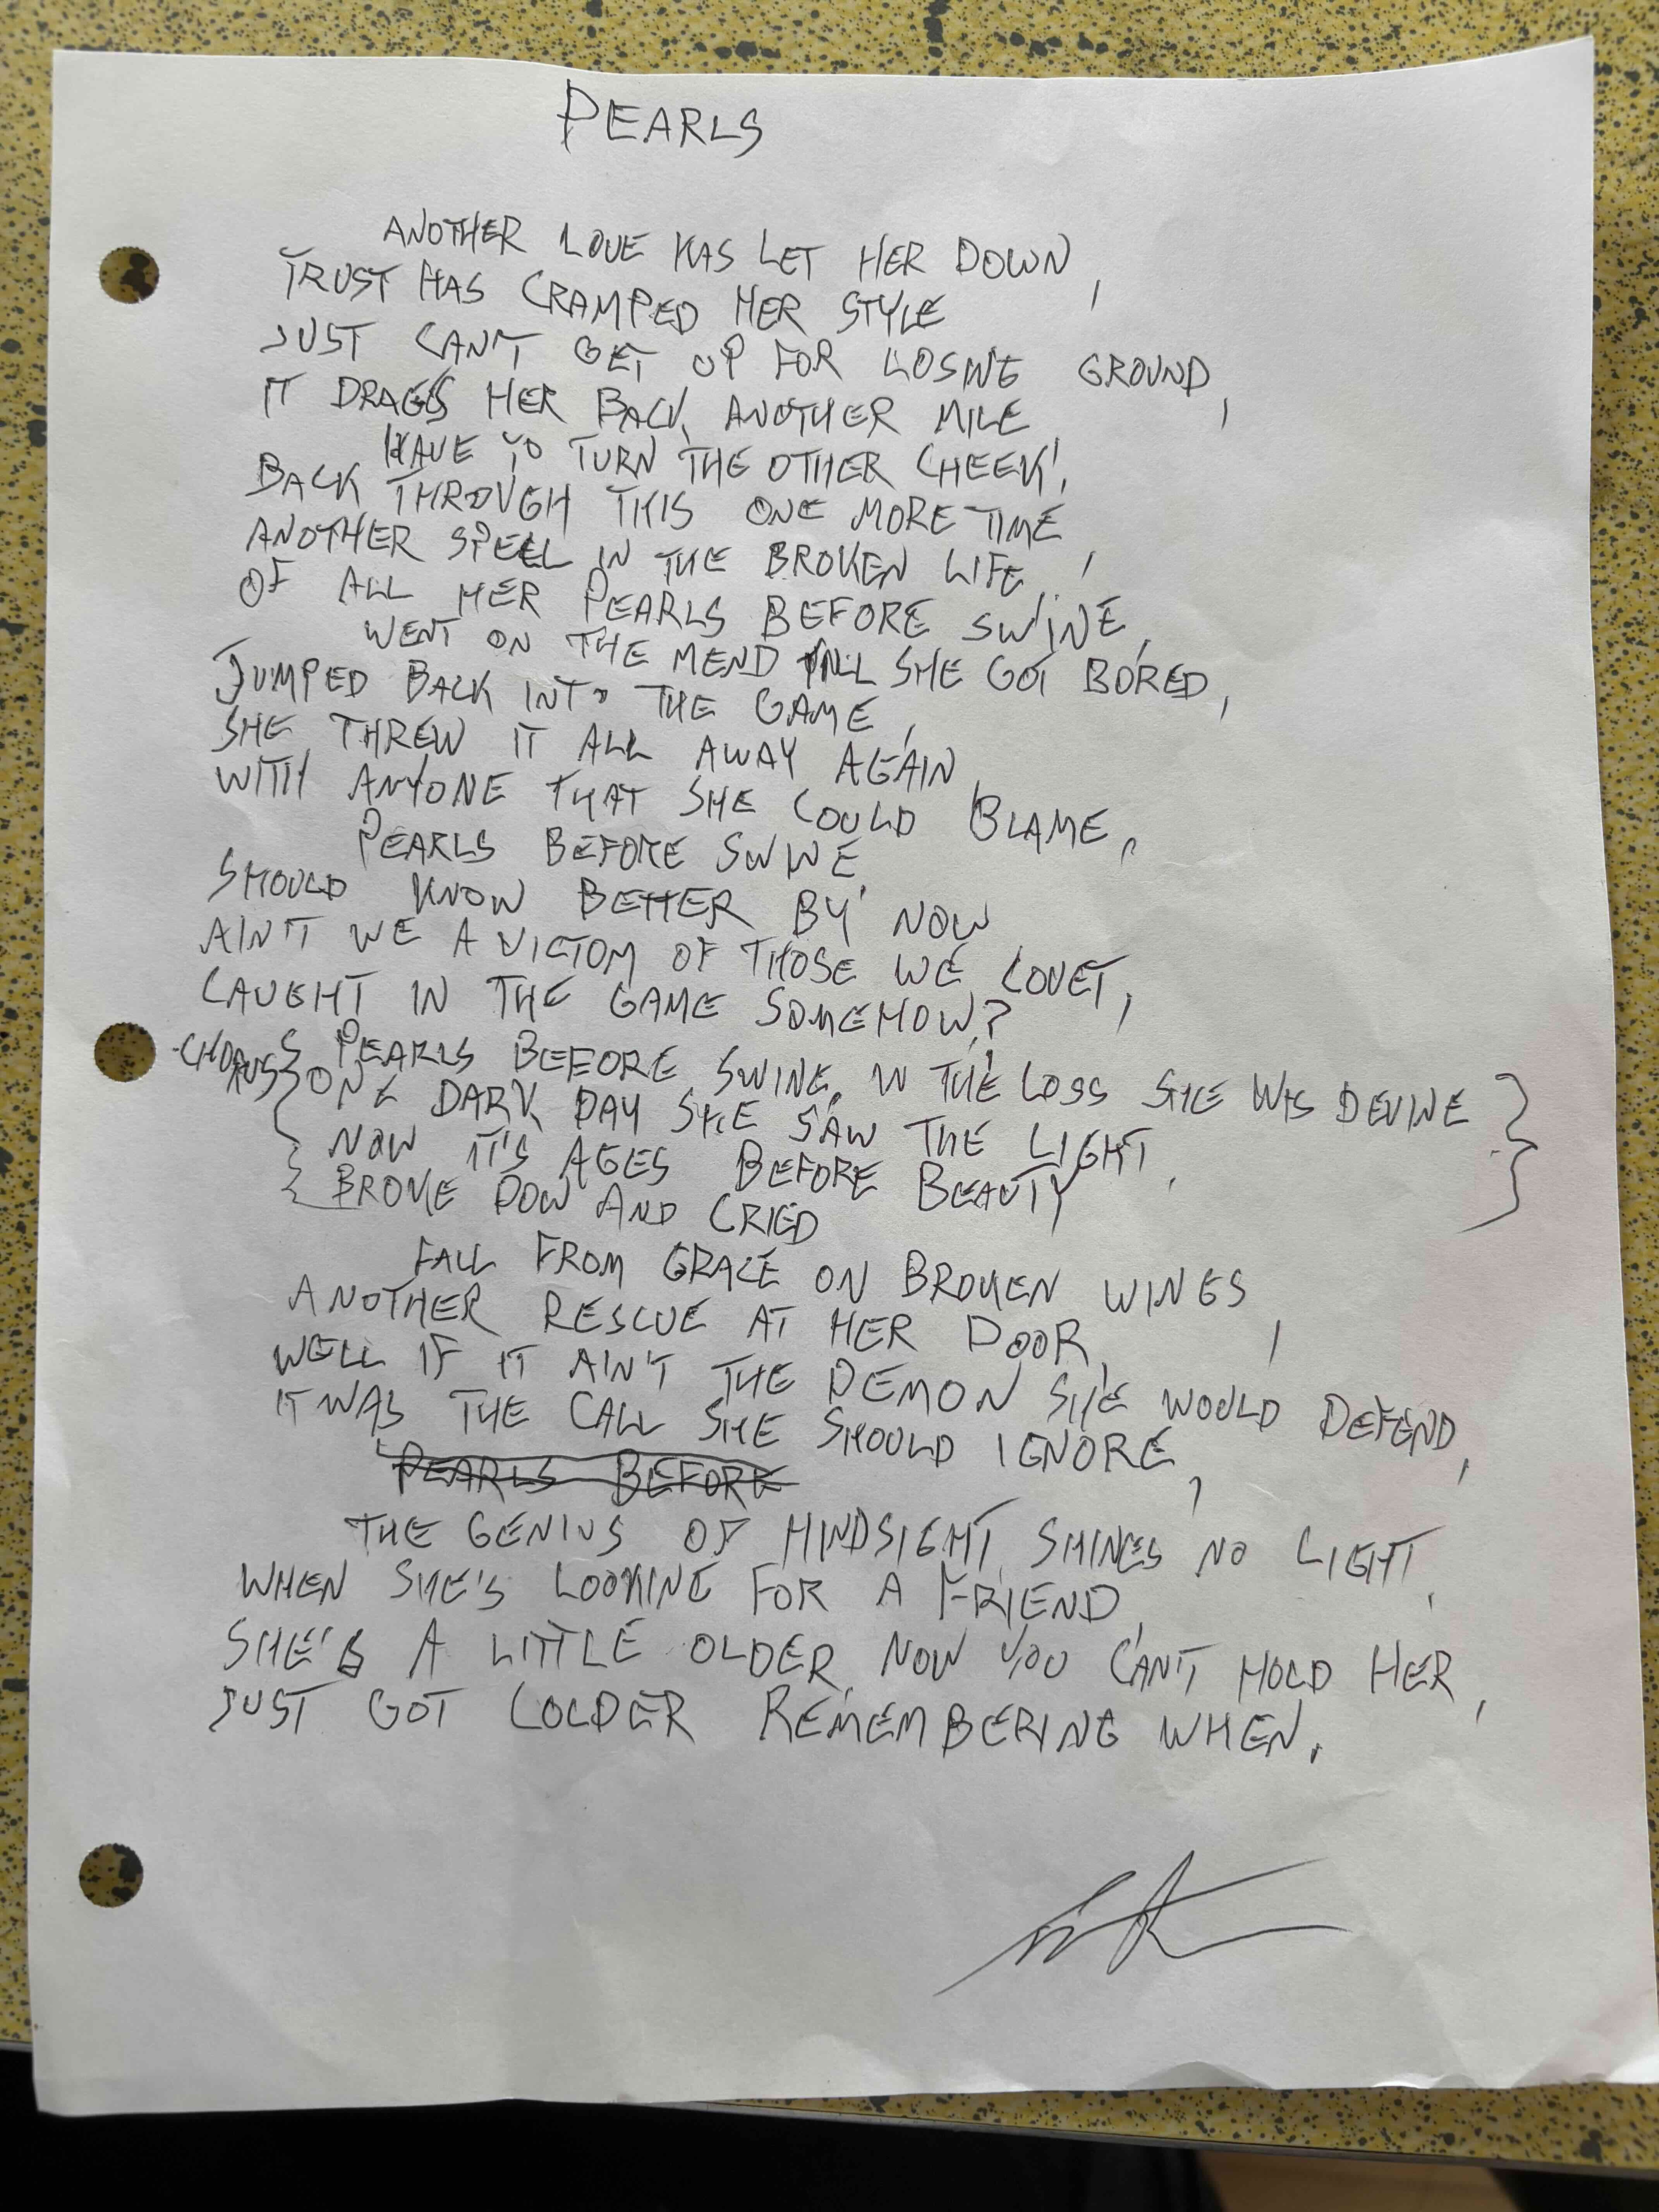 PEARLS
ANOTHER LOVE HAS LET HER DOWN,
TRUST HAS CRAMPED HER STYLE
JUST CAN'T GET UP FOR LOSING GROUND,
IT DRAGS HER BACK ANOTHER MILE
HAVE TO TURN THE OTHER CHEEK!,
BACK THROUGH THIS ONE MORE TIME
ANOTHER SPELL IN THE BROKEN LIFE,
OF ALL HER PEARLS BEFORE SWINE,
WENT ON THE MEND TILL SHE GOT BORED,
JUMPED BACK INTO THE GAME,
SHE THREW IT ALL AWAY AGAIN
WITH ANYONE THAT SHE COULD BLAME,
PEARLS BEFORE SWINE,
SHOULD KNOW BETTER BY NOW
AIN'T WE A VICTOM OF THOSE WE COVET,
CAUGHT IN THE GAME SOMEHOW?
CHORUS PEARLS BEFORE SWINE, IN THE LOSS SHE WAS DEVINE
ONE DARK DAY SHE SAW THE LIGHT,
NOW IT'S AGES BEFORE BEAUTY
BROKE DOW AND CRIED
FALL FROM GRACE ON BROKEN WINGS,
ANOTHER RESCUE AT HER DOOR,
WELL IF IT AIN'T THE DEMON SHE WOULD DEFEND,
IT WAS THE CALL SHE SHOULD IGNORE,
PEARLS BEFORE
THE GENIUS OF HINDSIGHT SHINES NO LIGHT,
WHEN SHE'S LOOKING FOR A FRIEND,
SHE'S A LITTLE OLDER, NOW YOU CAN'T HOLD HER,
JUST GOT COLDER REMEMBERING WHEN.